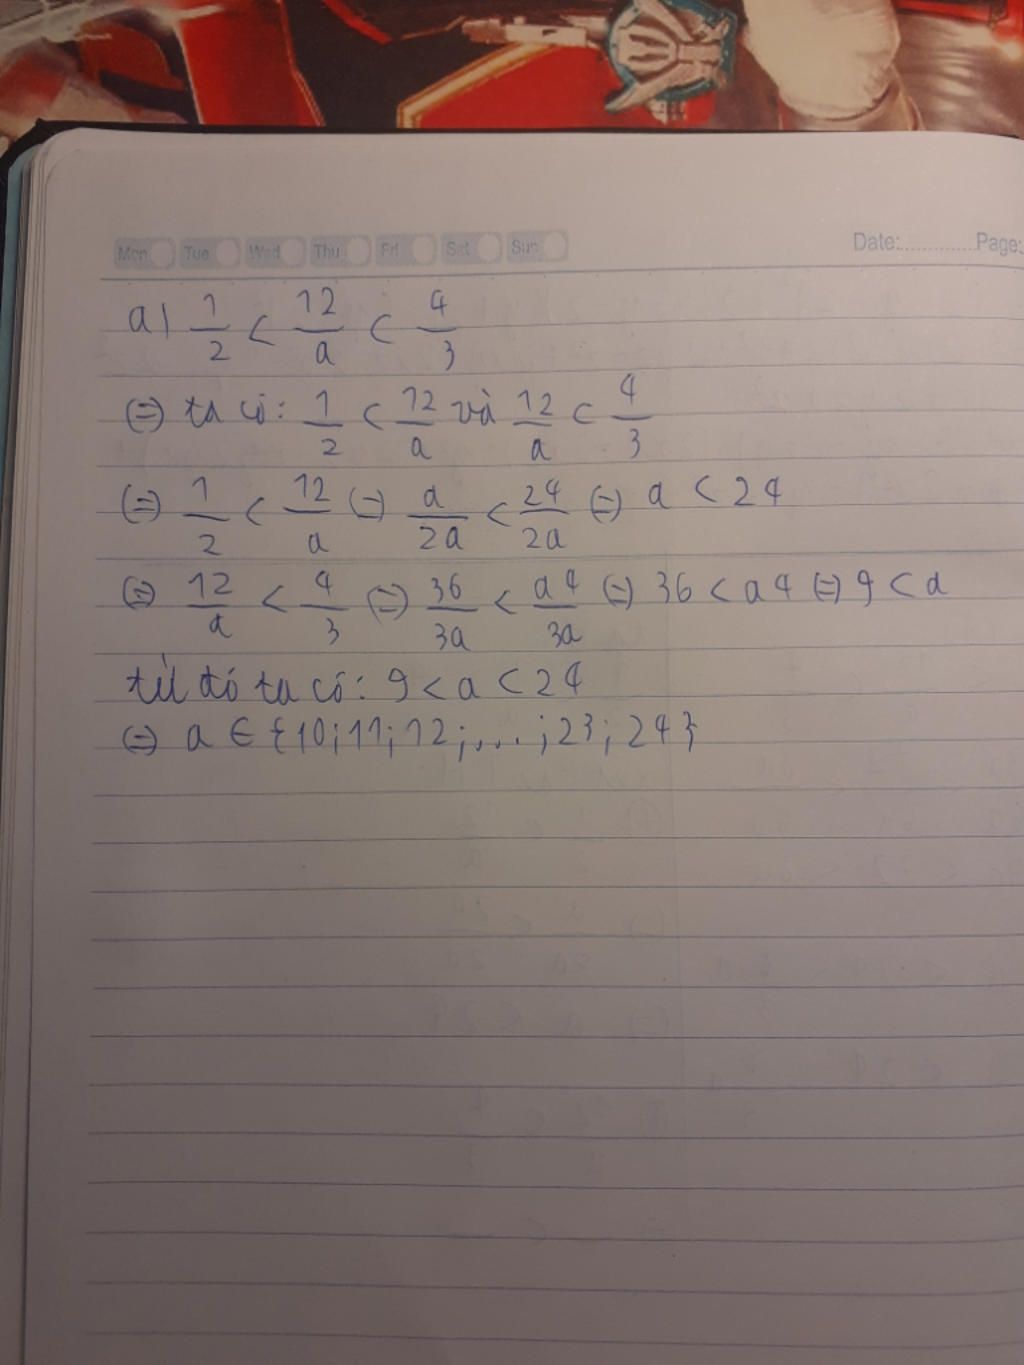 Mon Tue Wed Thu Fri Sat Sun Date:............Page:
a) 1/2 < 12/a < 4/3
(=) ta có: 1/2 < 12/a và 12/a < 4/3
(=) 1/2 < 12/a (=) a/2a < 24/2a (=) a < 24
(=) 12/a < 4/3 (=) 36/3a < a4/3a (=) 36 < a4 (=) 9 < a
từ đó ta có: 9 < a < 24
(=) a ∈ {10;11;12;...;23;24}